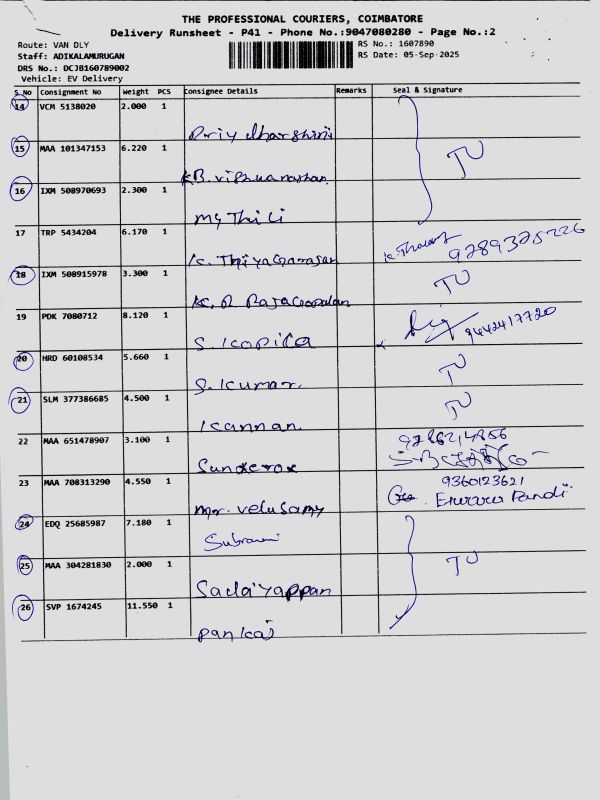 THE PROFESSIONAL COURIERS, COIMBATORE
Delivery Runsheet - P41 - Phone No.:9047080280 - Page No.:2
Route: VAN DLY
Staff: ADIKALAMURUGAN
DRS No.: DCJB160789002
Vehicle: EV Delivery
RS No.: 1607890
RS Date: 05-Sep-2025
S.No Consignment No Weight PCS Consignee Details Remarks Seal & Signature
14 VCM 5138020 2.000 1
Priydharshini
15 MAA 101347153 6.220 1 TU
KB. Vishwanathan
16 IXM 508970693 2.300 1
MyThili
17 TRP 5434204 6.170 1 9289325226
K. Thiyagarajan
18 IXM 508915978 3.300 1 TU
K. R Rajagopalan
19 PDK 7080712 8.120 1 9442417720
S. Kapila
20 HRD 60108534 5.660 1 TU
S. Kumar.
21 SLM 377386685 4.500 1 TU
Kannan.
22 MAA 651478907 3.100 1
23 MAA 708313290 4.550 1 9360123621
Mr. Velusamy
24 EDQ 25685987 7.180 1
25 MAA 304281830 2.000 1 TU
Sadaiyappan
26 SVP 1674245 11.550 1
Pankaj